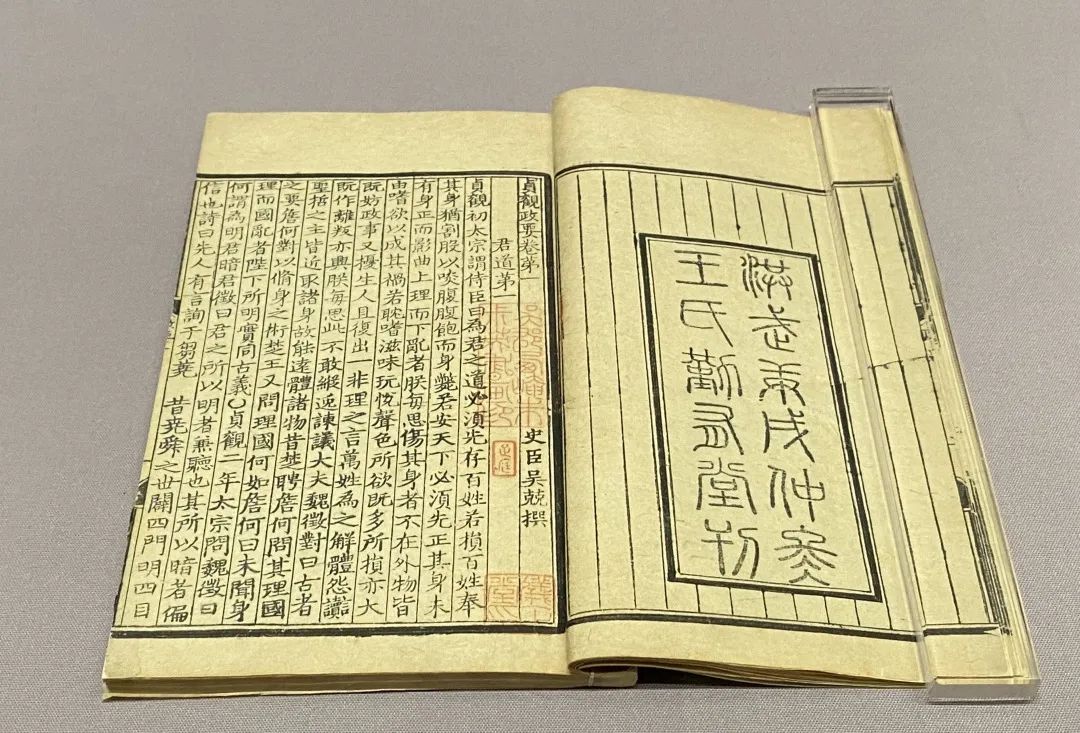 洪武庚戌仲冬
王氏勤有堂刊
貞觀政要卷第一 史臣吳兢撰
君道第一
貞觀初太宗謂侍臣曰為君之道必須先存百姓若損百姓奉
其身猶割股以啖腹腹飽而身斃若安天下必須先正其身未
有身正而影曲上理而下亂者朕每思傷其身者不在外物皆
由嗜欲以成其禍若耽嗜滋味玩悅聲色所欲既多所損亦大
既妨政事又擾生人且復出一非理之言萬姓為之解體怨讟
既作離叛亦興朕每思此不敢縱逸諫議大夫魏徵對曰古者
聖哲之主皆近取諸身故能遠體諸物昔楚聘詹何問其理國
之要詹何對以脩身之術楚王又問理國何如詹何曰未聞身
理而國亂者陛下所明實同古義〇貞觀二年太宗問魏徵曰
何謂為明君暗君徵曰君之所以明者兼聽也其所以暗者偏
信也詩曰先人有言詢于芻蕘昔堯舜之世闢四門明四目